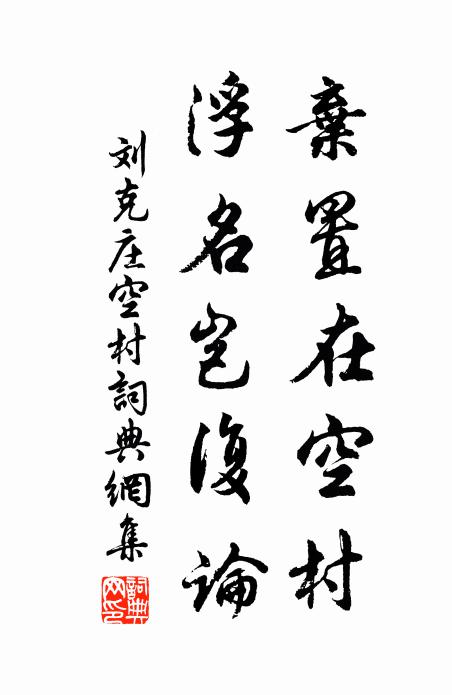 棄置在空村
浮名岂復論
刘克庄空村詞典網集
詞典網印